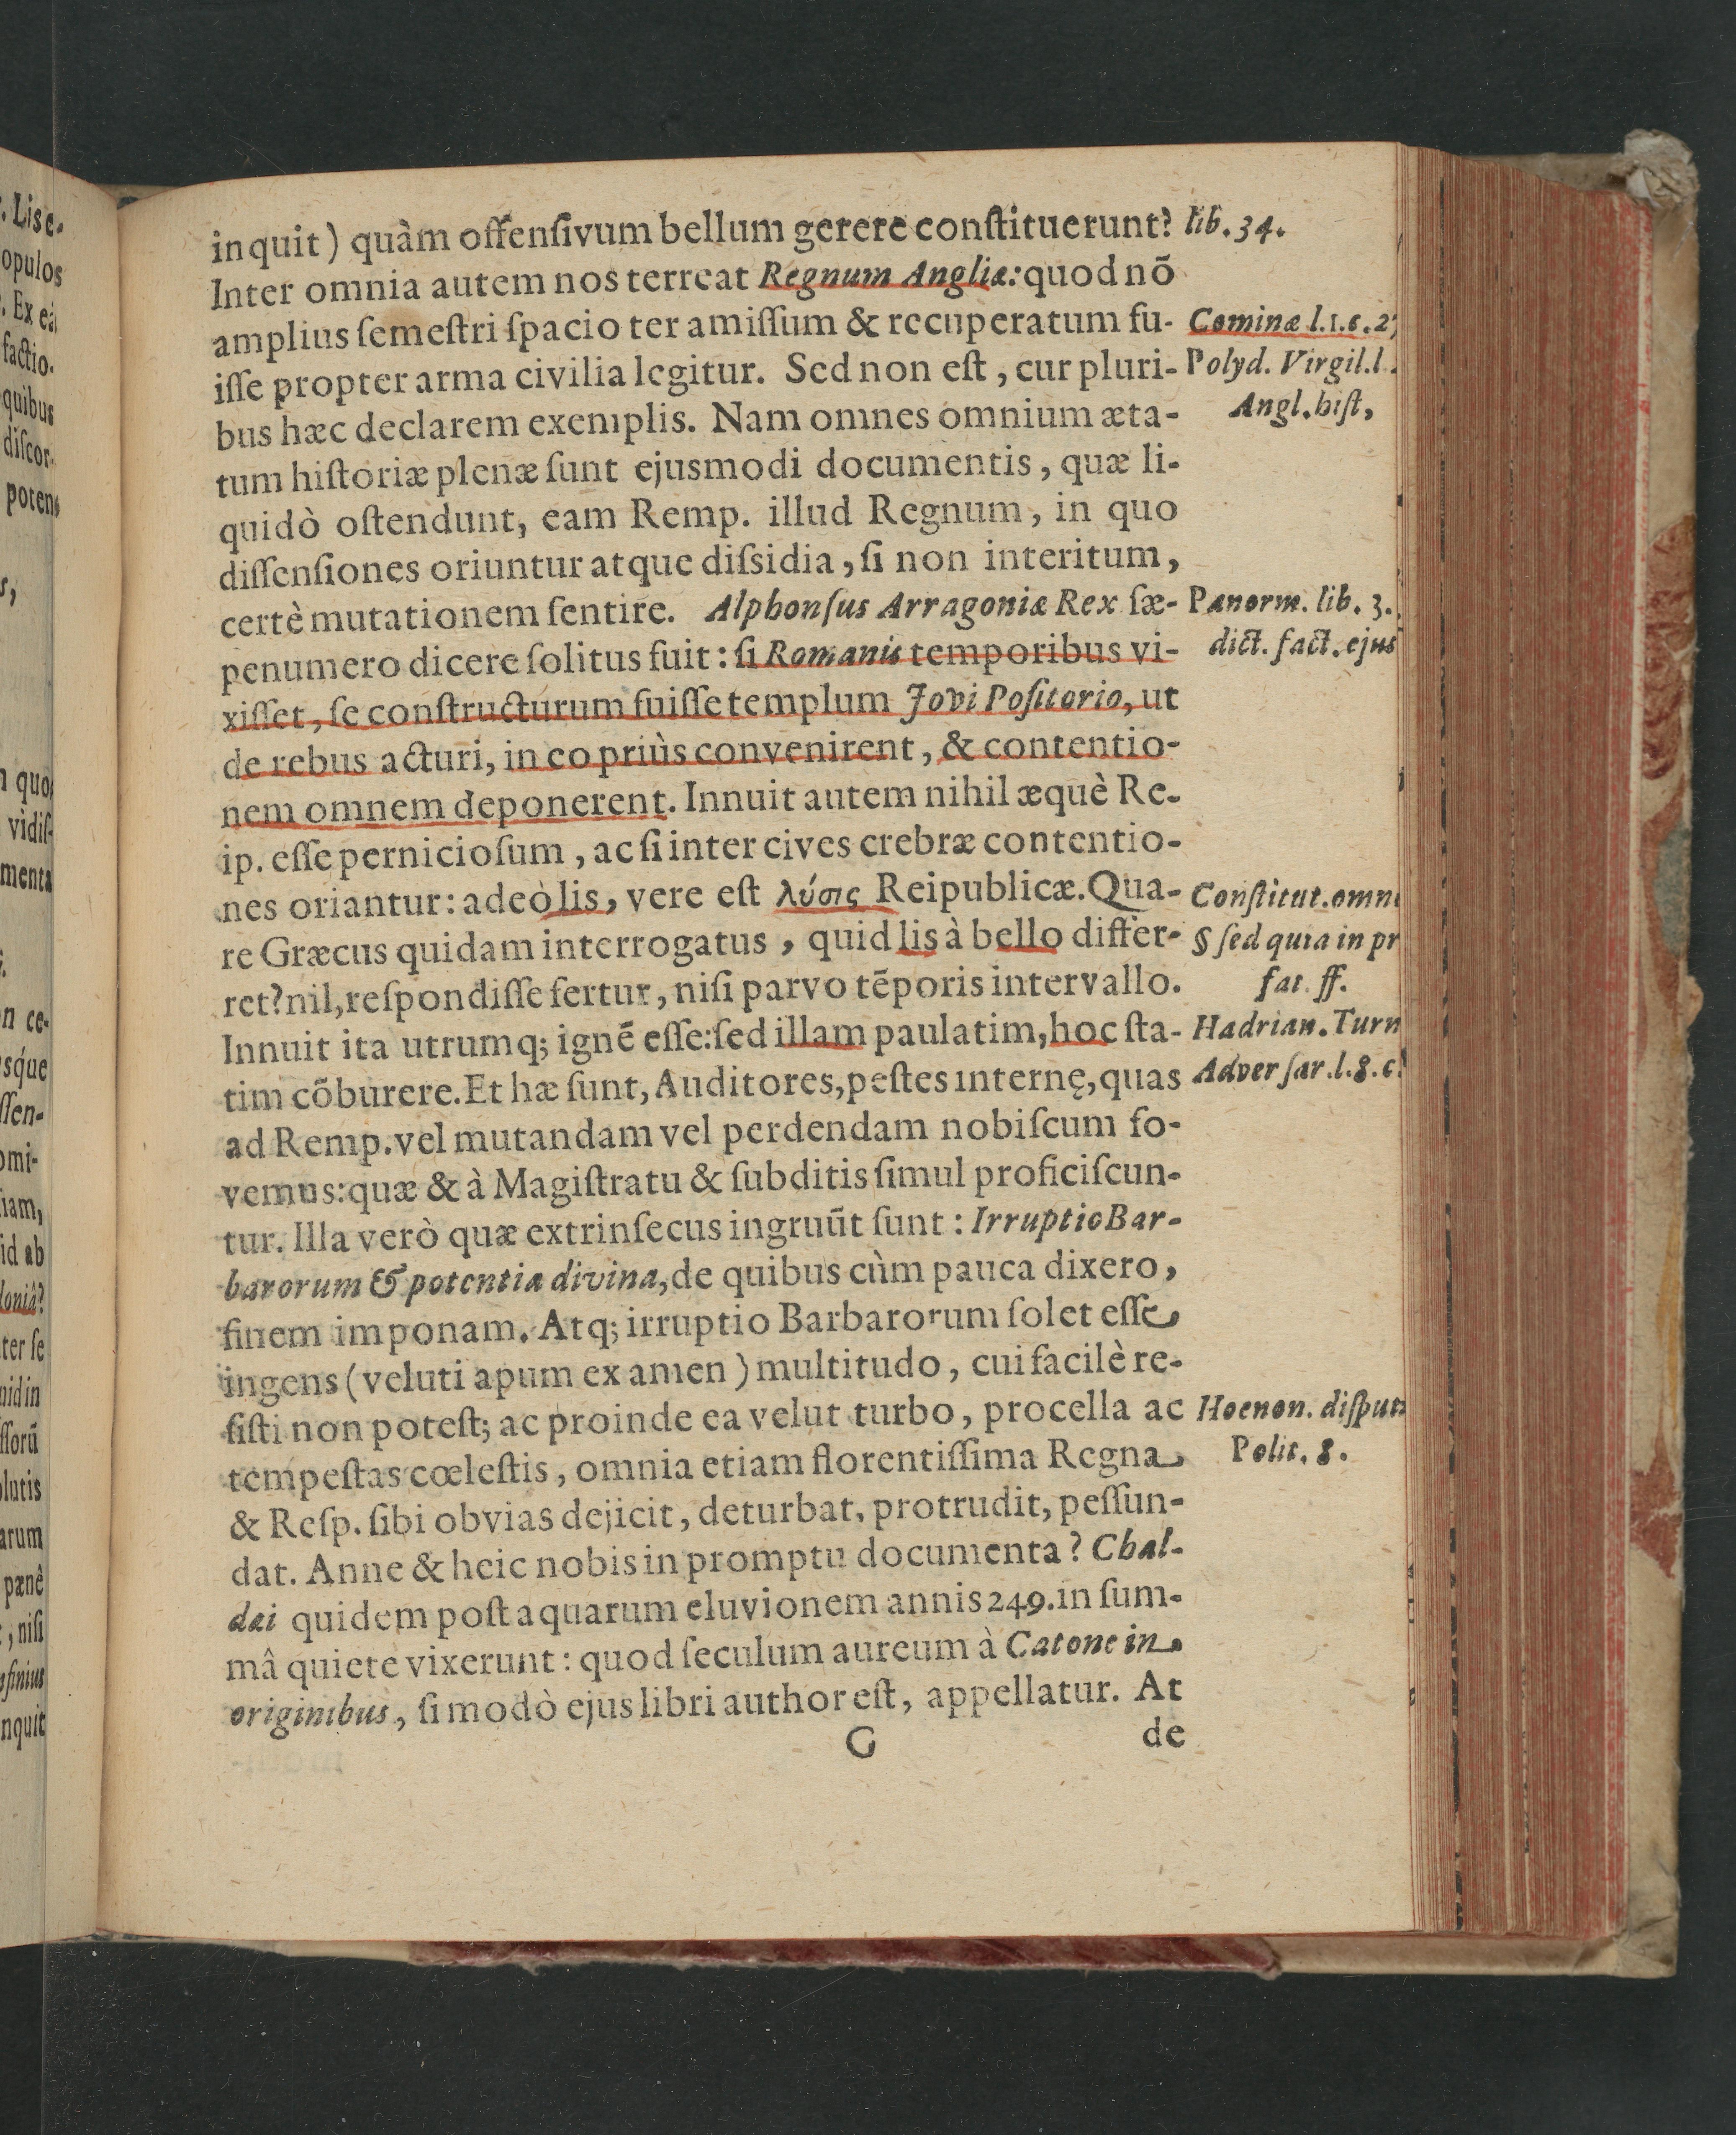 inquit) quàm offenſivum bellum gerere conſtituerunt?
lib. 34.
Inter omnia autem nos terreat Regnum Angliæ: quod nõ
amplius ſemeſtri ſpacio ter amiſſum & recuperatum fu-
Cominæ l.1.c.2
iſſe propter arma civilia legitur. Sed non eſt, cur pluri-
Polyd. Virgil.l.
bus hæc declarem exemplis. Nam omnes omnium æta-
Angl. hiſt,
tum hiſtoriæ plenæ ſunt ejusmodi documentis, quæ li-
quidò oſtendunt, eam Remp. illud Regnum, in quo
diſſenſiones oriuntur atque diſsidia, ſi non interitum,
certè mutationem ſentire. Alphonſus Arragoniæ Rex ſæ-
Panorm. lib. 3.
penumero dicere ſolitus fuit: ſi Romanis temporibus vi-
dict. fact. ejus
xiſſet, ſe conſtructurum fuiſſe templum Jovi Poſitorio, ut
de rebus acturi, in eo priùs convenirent, & contentio-
nem omnem deponerent. Innuit autem nihil æquè Re-
ip. eſſe pernicioſum, ac ſi inter cives crebræ contentio-
nes oriantur: adeò lis, vere eſt λύσις Reipublicæ. Qua-
Conſtitut. omn
re Græcus quidam interrogatus, quid lis à bello differ-
§ ſed quia in pr
ret? nil, reſpondiſſe fertur, niſi parvo tẽporis intervallo.
fat. ff.
Innuit ita utrumq; ignẽ eſſe: ſed illam paulatim, hoc ſta-
Hadrian. Turn
tim cõburere. Et hæ ſunt, Auditores, peſtes internę, quas
Adverſar. l. 8. c.
ad Remp. vel mutandam vel perdendam nobiſcum fo-
vemus: quæ & à Magiſtratu & ſubditis ſimul proficiſcun-
tur. Illa verò quæ extrinſecus ingruũt ſunt: Irruptio Bar-
barorum & potentia divina, de quibus cùm pauca dixero,
finem imponam. Atq; irruptio Barbarorum ſolet eſſe
ingens (veluti apum examen) multitudo, cui facilè re-
ſiſti non poteſt; ac proinde ea velut turbo, procella ac
Hoenon. diſput.
tempeſtas cœleſtis, omnia etiam florentiſſima Regna
Polit. 8.
& Reſp. ſibi obvias dejicit, deturbat, protrudit, peſſun-
dat. Anne & heic nobis in promptu documenta? Chal-
dæi quidem poſt aquarum eluvionem annis 249. in ſum-
mâ quiete vixerunt: quod ſeculum aureum à Catone in
originibus, ſi modò ejus libri author eſt, appellatur. At
G
de